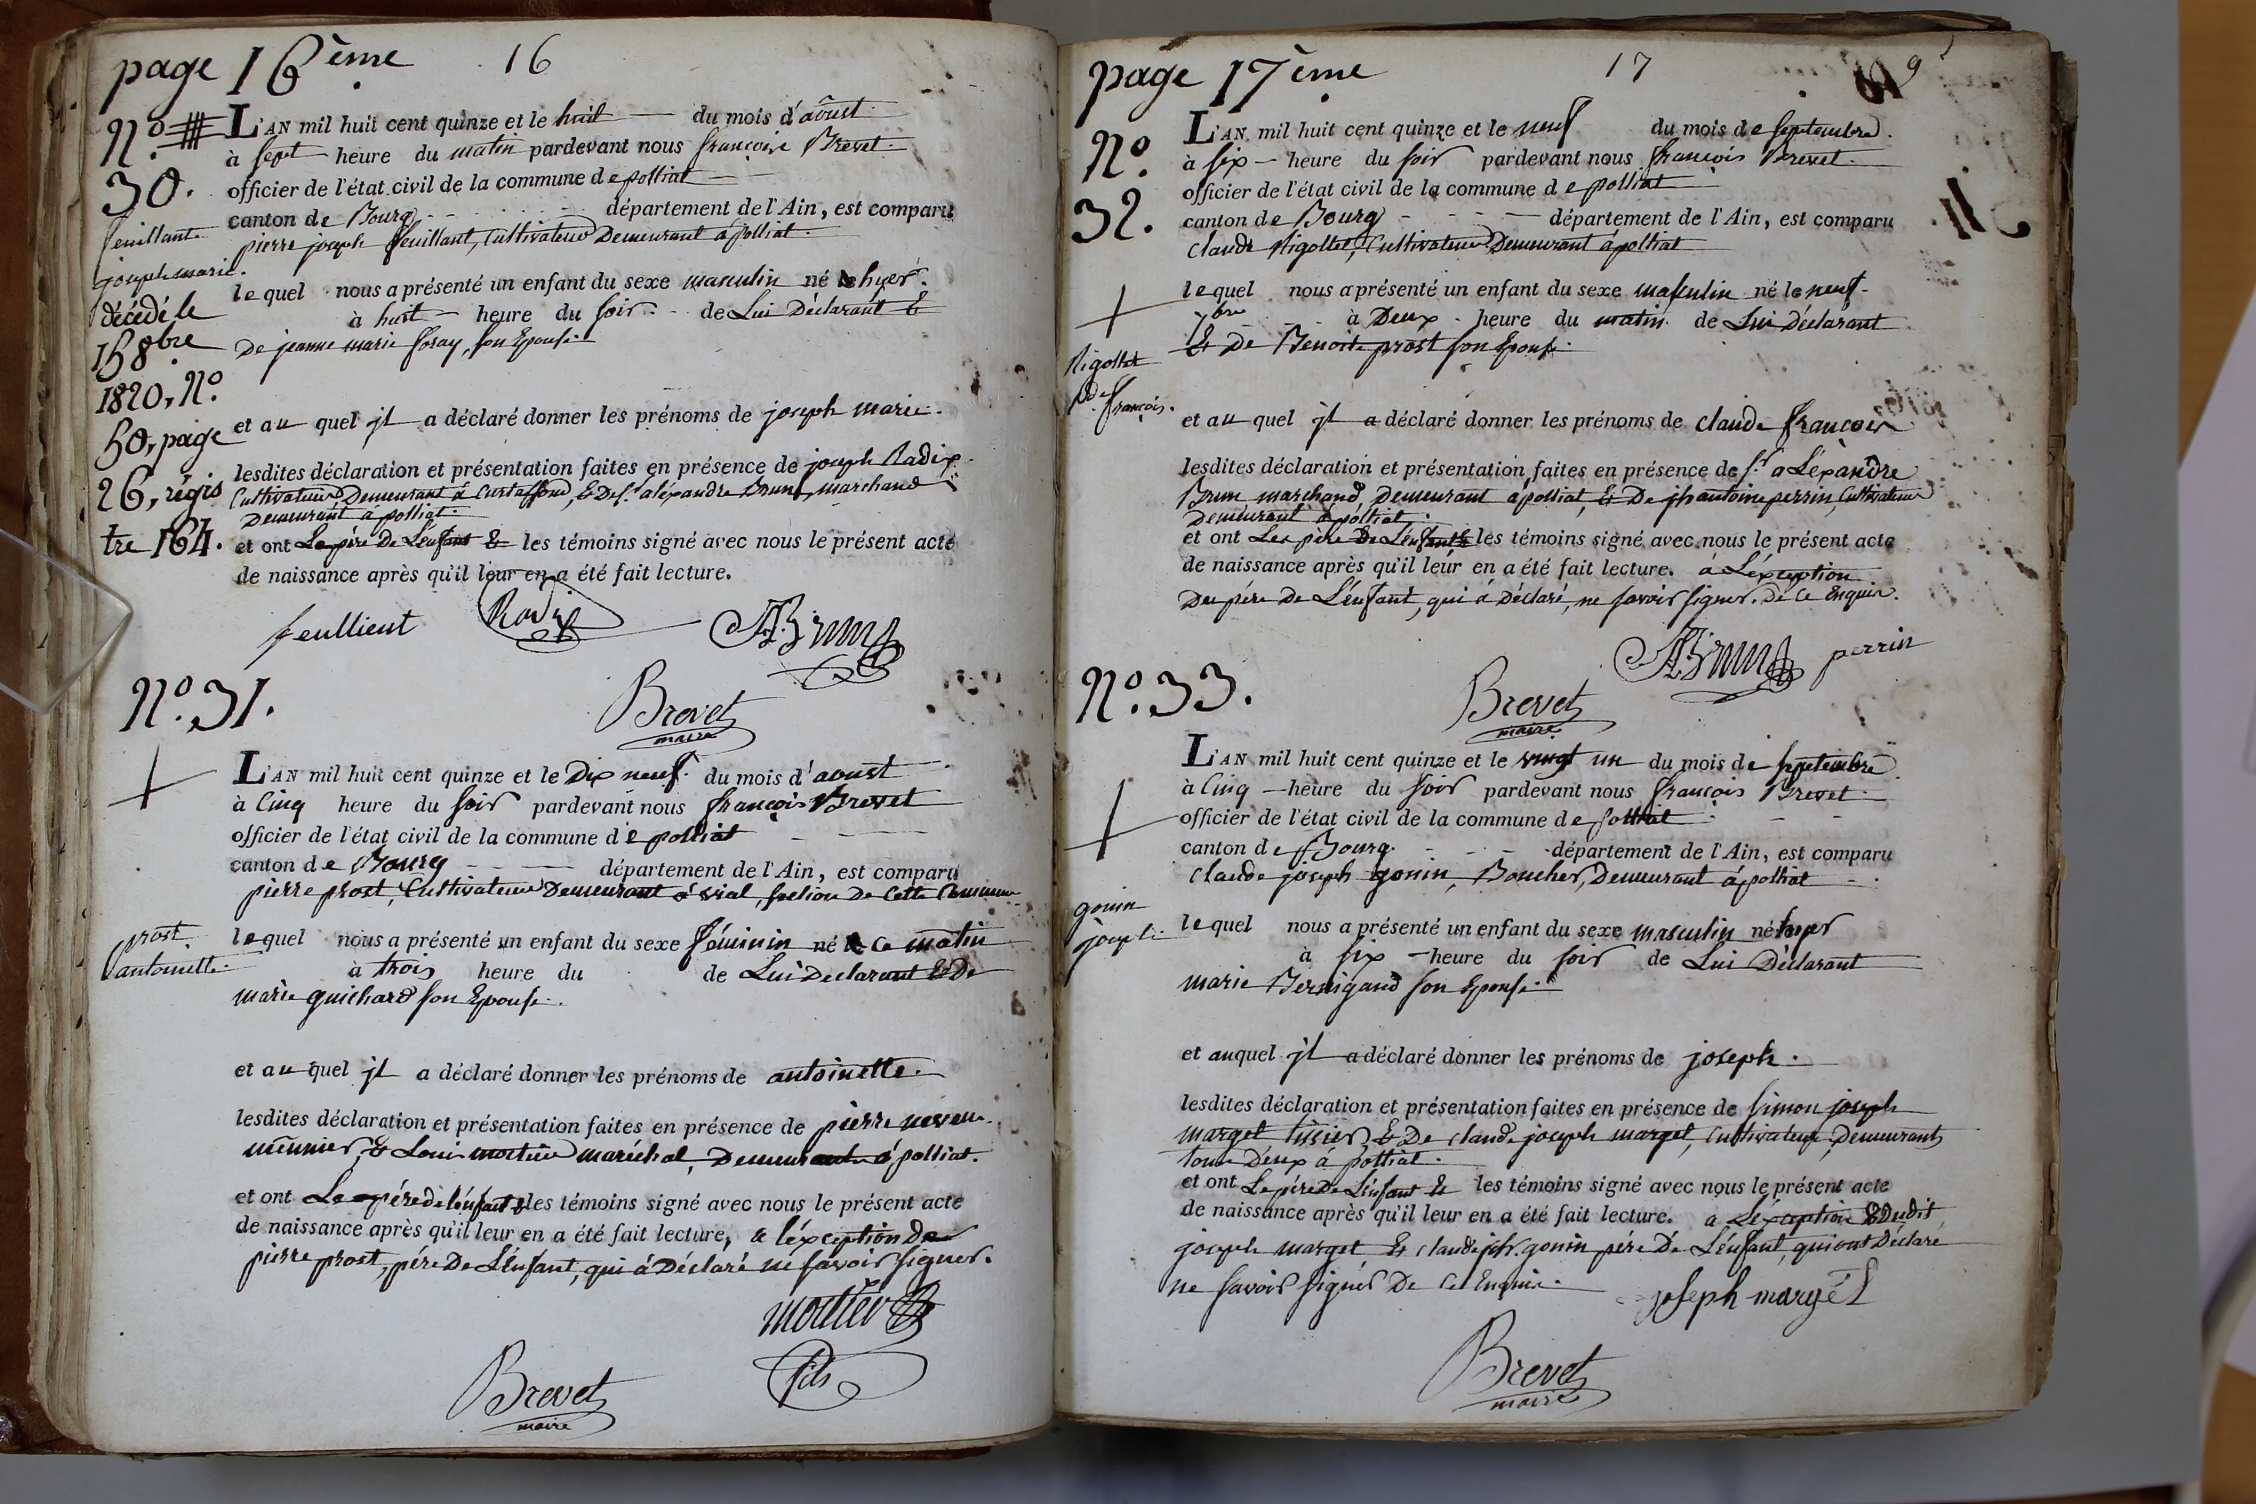 page 16ème 16
N.º
30.
feuillant
joseph marie.
décédé le
15 8bre
1820, N.º
50, page
26, régis
tre 164.
L'AN mil huit cent quinze et le huit du mois d'aôust
à sept heure du matin pardevant nous françois Brevet
officier de l'état civil de la commune de polliat
canton de Bourg département de l'Ain, est comparu
pierre joseph feuillant, Cultivateur Demeurant à polliat
lequel nous a présenté un enfant du sexe masculin né hyer
à huit heure du soir de Lui Déclarant &
De jeanne marie foray, son Epouse.
et au quel jl a déclaré donner les prénoms de joseph marie.
lesdites déclaration et présentation faites en présence de joseph Radix
Cultivateur Demeurant à Curtaffond, & De s.r aléxandre Brun, marchand
Demeurant à polliat.
et ont Le père De L'énfant & les témoins signé avec nous le présent acte
de naissance après qu'il leur en a été fait lecture.
feullient Radix ABrun
Brevet
maire
N.º 31.
prost
antoinette
L'AN mil huit cent quinze et le Dix neuf du mois d'aoust
à Cinq heure du soir pardevant nous françois Brevet
officier de l'état civil de la commune de polliat
canton de Bourg département de l'Ain, est comparu
pierre prost, Cultivateur Demeurant à vial, section De Cette Commune
lequel nous a présenté un enfant du sexe féminin né Ce matin
à trois heure du de Lui Declarant & De
marie guichard son Epouse.
et au quel jl a déclaré donner les prénoms de antoinette.
lesdites déclaration et présentation faites en présence de pierre
meunier, & Louis mortier maréchal, Demeurant à polliat.
et ont Le pére de l'énfant & les témoins signé avec nous le présent acte
de naissance après qu'il leur en a été fait lecture, a l'éxception de
pierre prost, pére De L'énfant, qui à Déclaré ne savoir signer.
mortier
fils
Brevet
maire
page 17ème 17 9
N.º
32.
Rigollet
de
françois.
L'AN mil huit cent quinze et le neuf du mois de septembre.
à six heure du soir pardevant nous françois Brevet
officier de l'état civil de la commune de polliat
canton de Bourg département de l'Ain, est comparu
Claude Rigollet, Cultivateur Demeurant à polliat
lequel nous a présenté un enfant du sexe masculin né le neuf
7bre à Deux heure du matin de Lui Déclarant
& De Benoite prost son Epouse.
et au quel jl a déclaré donner les prénoms de claude françois
lesdites déclaration et présentation faites en présence de s.r aLéxandre
Brun marchand, Demeurant à polliat, & De jh antoine perrin, Cultivateur
Demeurant à polliat.
et ont Les père De L'énfant & les témoins signé avec nous le présent acte
de naissance après qu'il leur en a été fait lecture. à L'éxception
Du pére De L'énfant, qui à Déclaré, ne savoir signer. De ce Enquis.
ABrun perrin
Brevet
maire
N.º 33.
gonin
joseph
L'AN mil huit cent quinze et le vingt un du mois de septembre
à Cinq heure du soir pardevant nous françois Brevet
officier de l'état civil de la commune de polliat
canton de Bourg. département de l'Ain, est comparu
claude joseph gonin, Boucher, Demeurant à polliat
lequel nous a présenté un enfant du sexe masculin né hyer
à six heure du soir de Lui Déclarant
marie Bernigaud son Epouse.
et auquel jl a déclaré donner les prénoms de joseph.
lesdites déclaration et présentation faites en présence de simon joseph
marget tissier & De claude joseph marget, Cultivateur, Demeurant
tous Deux à polliat.
et ont Le père De L'énfant & les témoins signé avec nous le présent acte
de naissance après qu'il leur en a été fait lecture. a L'éxception Dudit
joseph marget & claude jph. gonin pére De L'énfant, qui ont Déclaré
ne savoir signer De Ce Enquis.
joseph margét
Brevet
maire